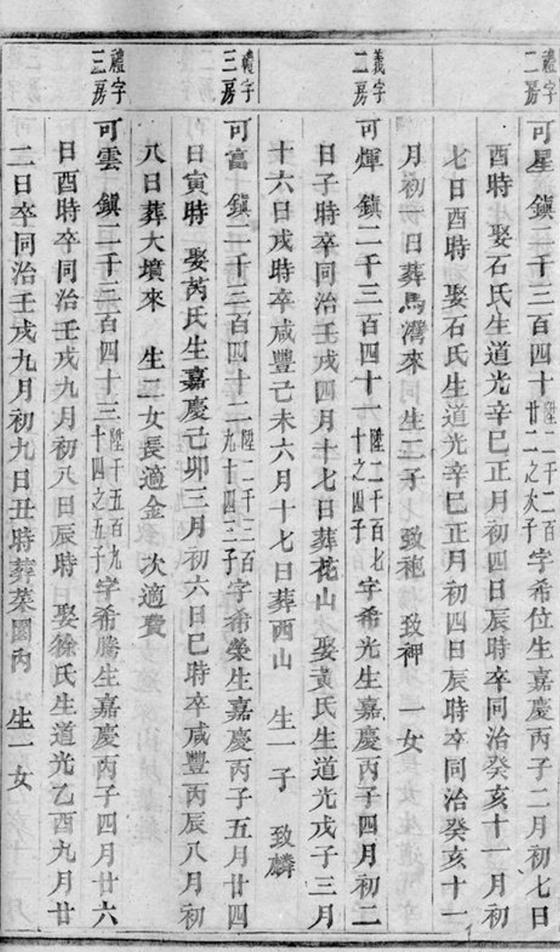 禮字二房
可星 鎮二千三百四十 陞二千二百廿二之次子 字希位生嘉慶丙子二月初七日
酉時 娶石氏生道光辛巳正月初四日辰時卒同治癸亥十一月初
七日酉時 娶石氏生道光辛巳正月初四日辰時卒同治癸亥十一
月初一日葬馬灣來 同生二子 致袍 致神 一女
義字二房
可煇 鎮二千三百四十一 陞二千百七十之四子 字希光生嘉慶丙子四月初二
日子時卒同治壬戌四月十七日葬花山 娶黃氏生道光戊子三月
十六日戌時卒咸豐己未六月十七日葬西山 生一子 致麟
禮字三房
可富 鎮二千三百四十二 陞二千二百九十四三子 字希榮生嘉慶丙子五月廿四
日寅時 娶芮氏生嘉慶己卯三月初六日巳時卒咸豐丙辰八月初
八日葬大墳來 生二女長適金 次適費
禮字三房
可雲 鎮二千三百四十三 陞千五百九十四之五子 字希騰生嘉慶丙子四月廿六
日酉時卒同治壬戌九月初八日辰時 娶徐氏生道光乙酉九月廿
二日卒同治壬戌九月初九日丑時葬菜園內 生一女